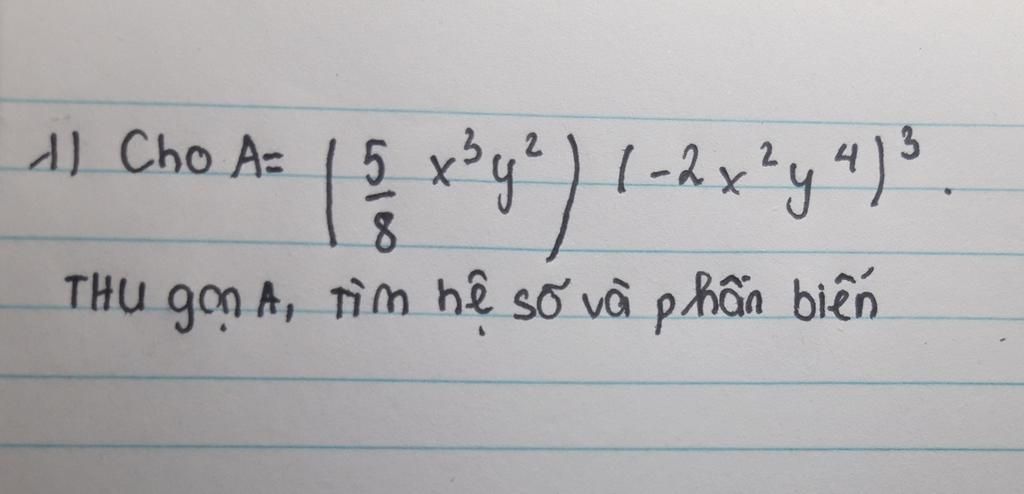 1) Cho A = (5/8 x³y²) (-2x²y⁴)³.
THU gọn A, Tìm hệ số và phần biến